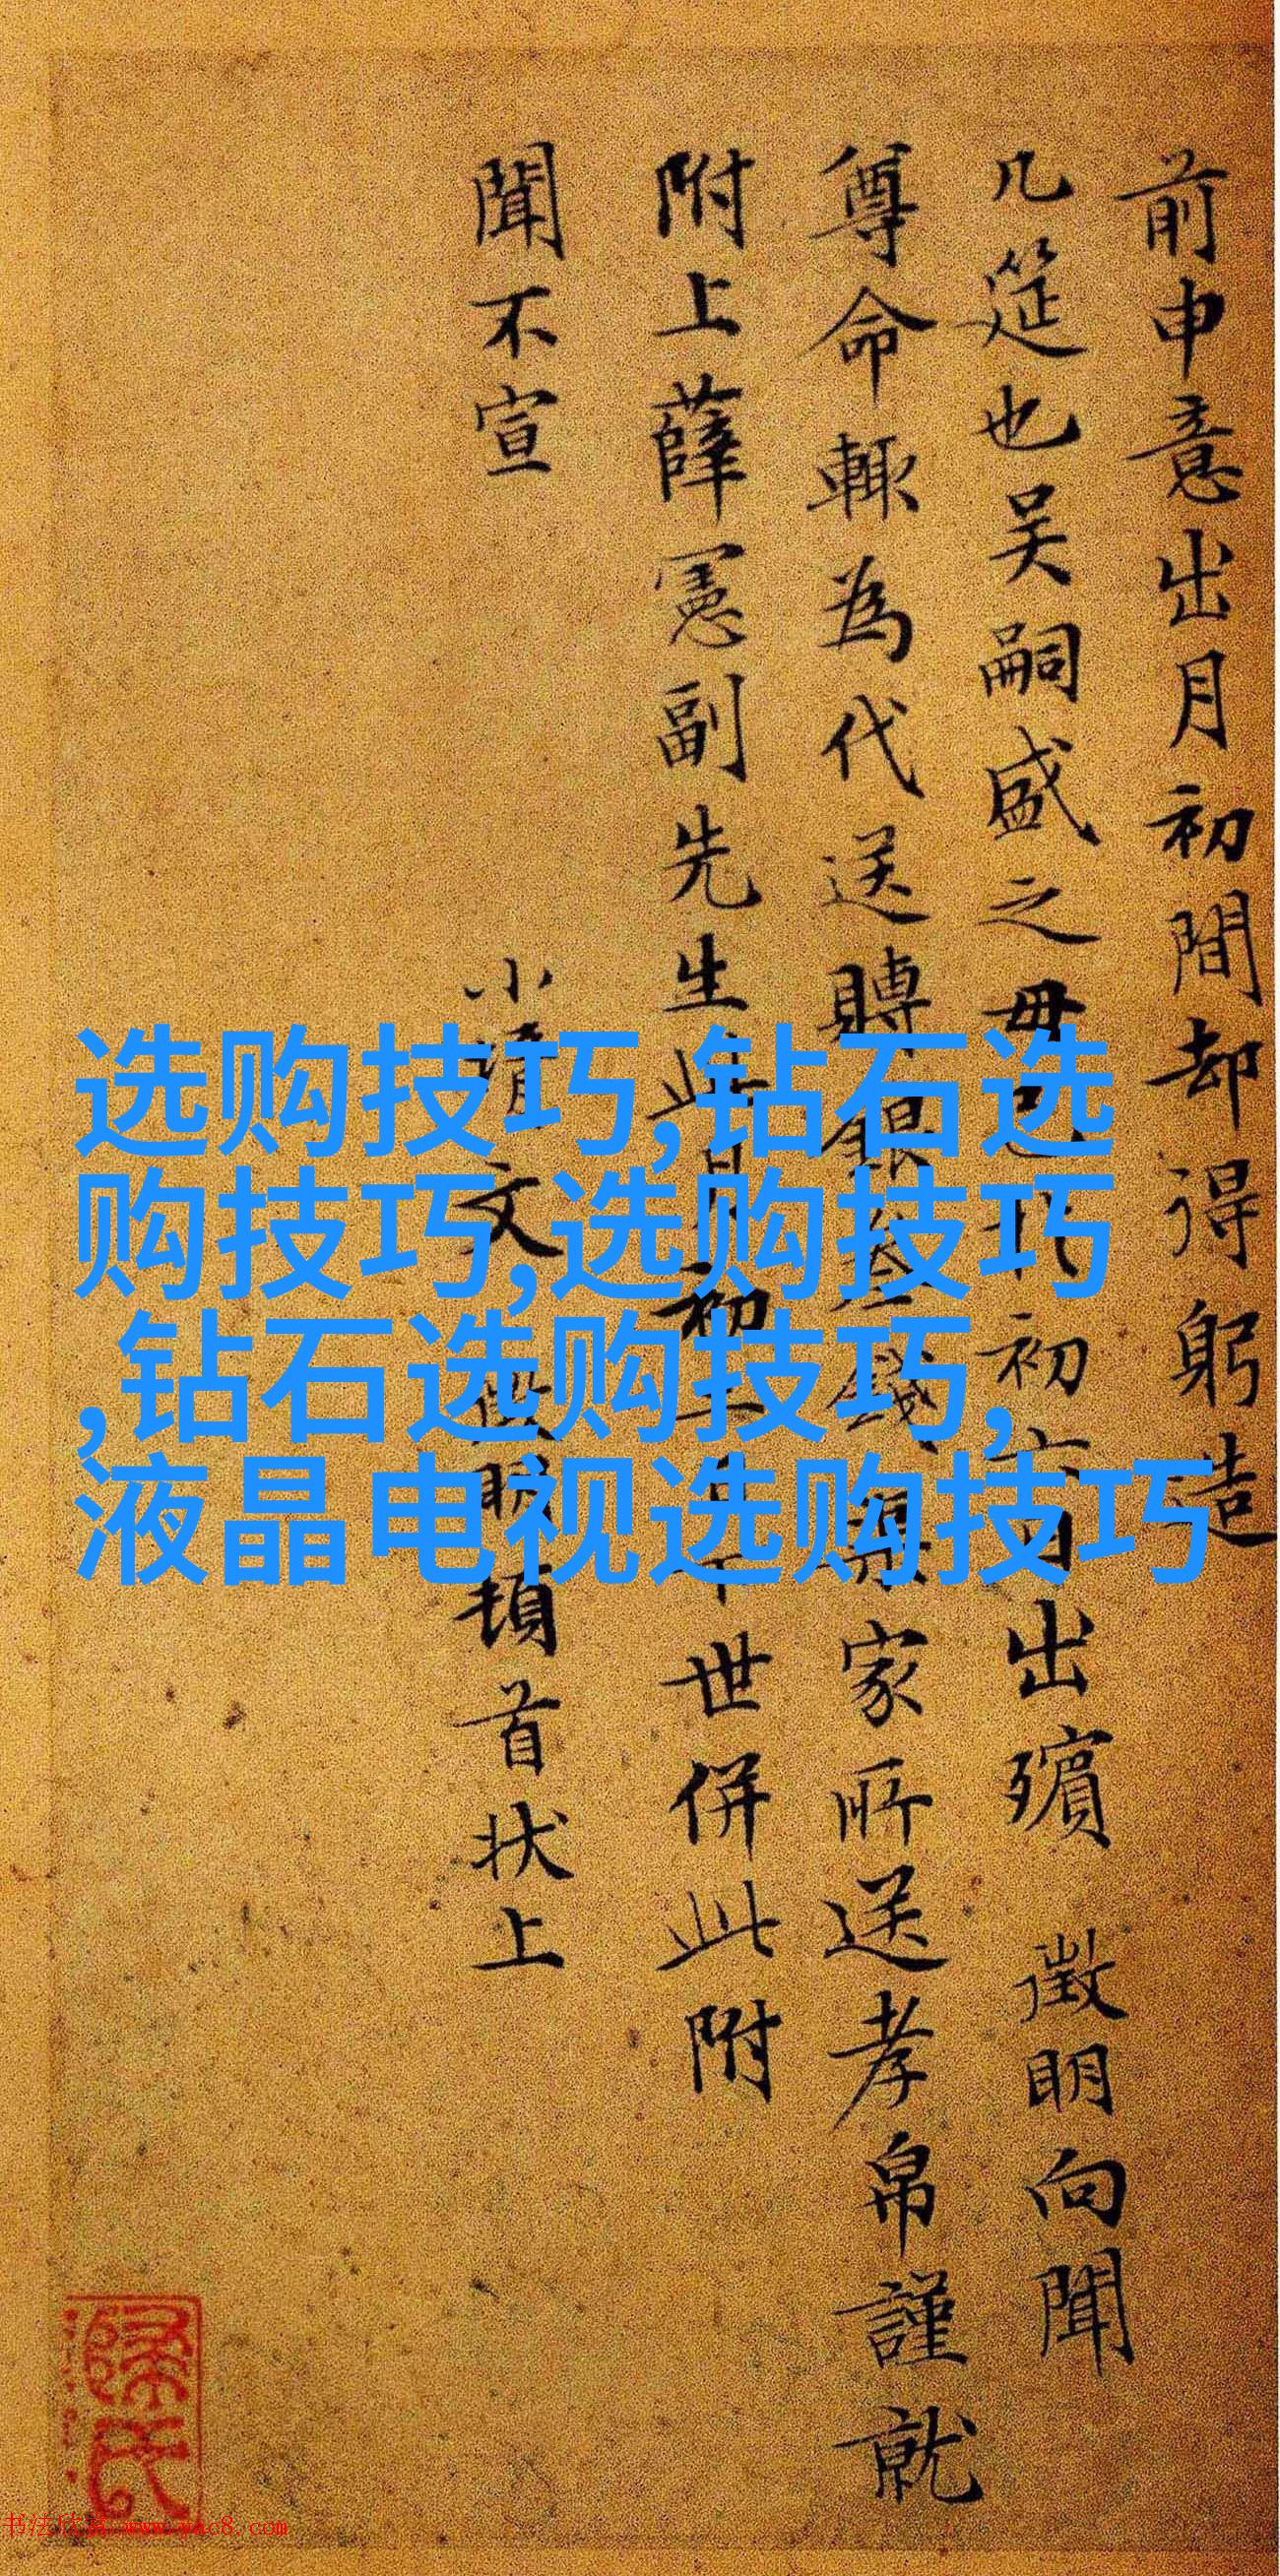 前申意出月初間却得躬造
几筵也吴嗣盛之毋初日出殯 徵明向聞
尊命輙為代送賻銀錢家所送孝帛謹就
附上薛憲副先生此月初世併此附
聞不宣
小文明頓首状上
选购技巧,钻石选
购技巧,选购技巧
,钻石选购技巧,
液晶电视选购技巧
书法欣赏 www.yac8.com